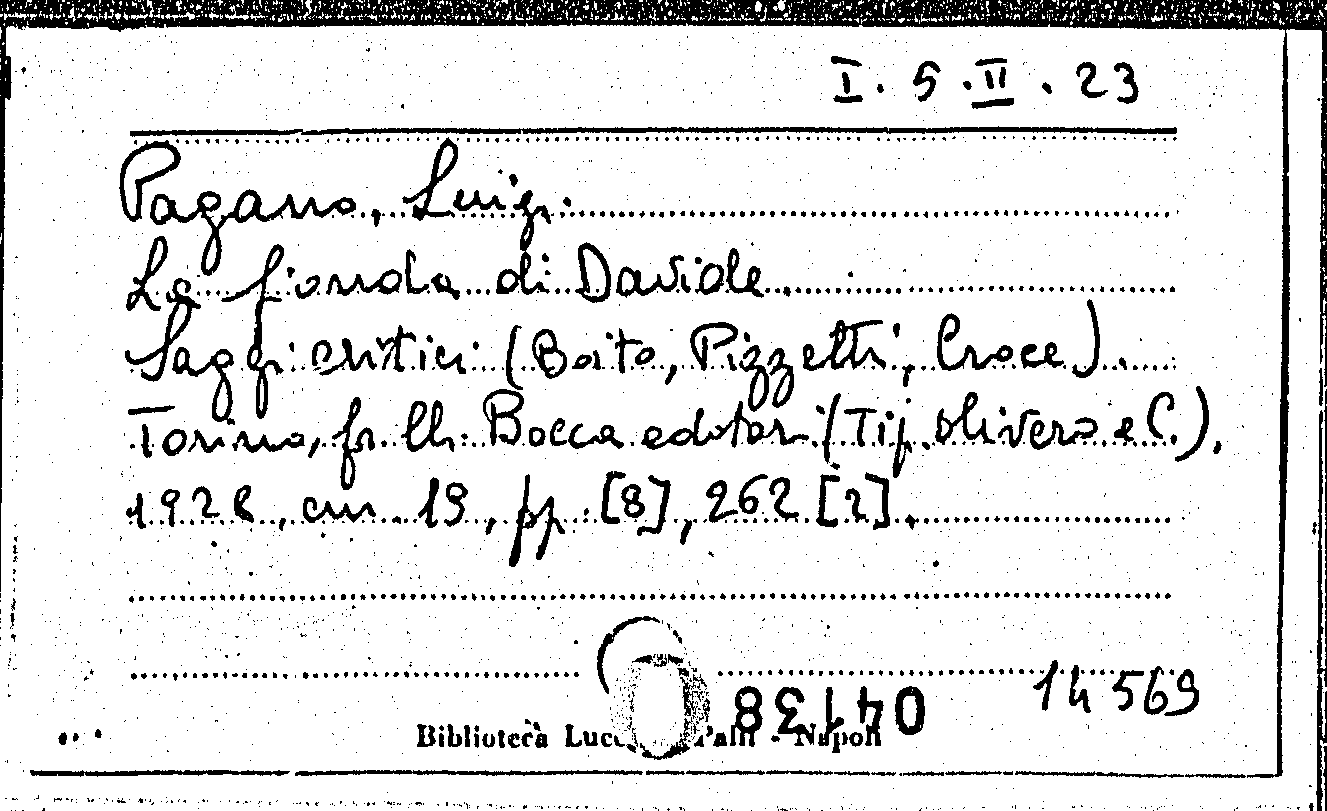 I. 5. II. 23
Pagano, Luigi.
La fionda di Davide.
Saggi critici (Boito, Pizzetti, Croce).
Torino, fr.lli Bocca editori (Tip. Olivero e C.),
1928, cm. 19, pp. [8], 262 [2].
04138
14569
Biblioteca - Napoli